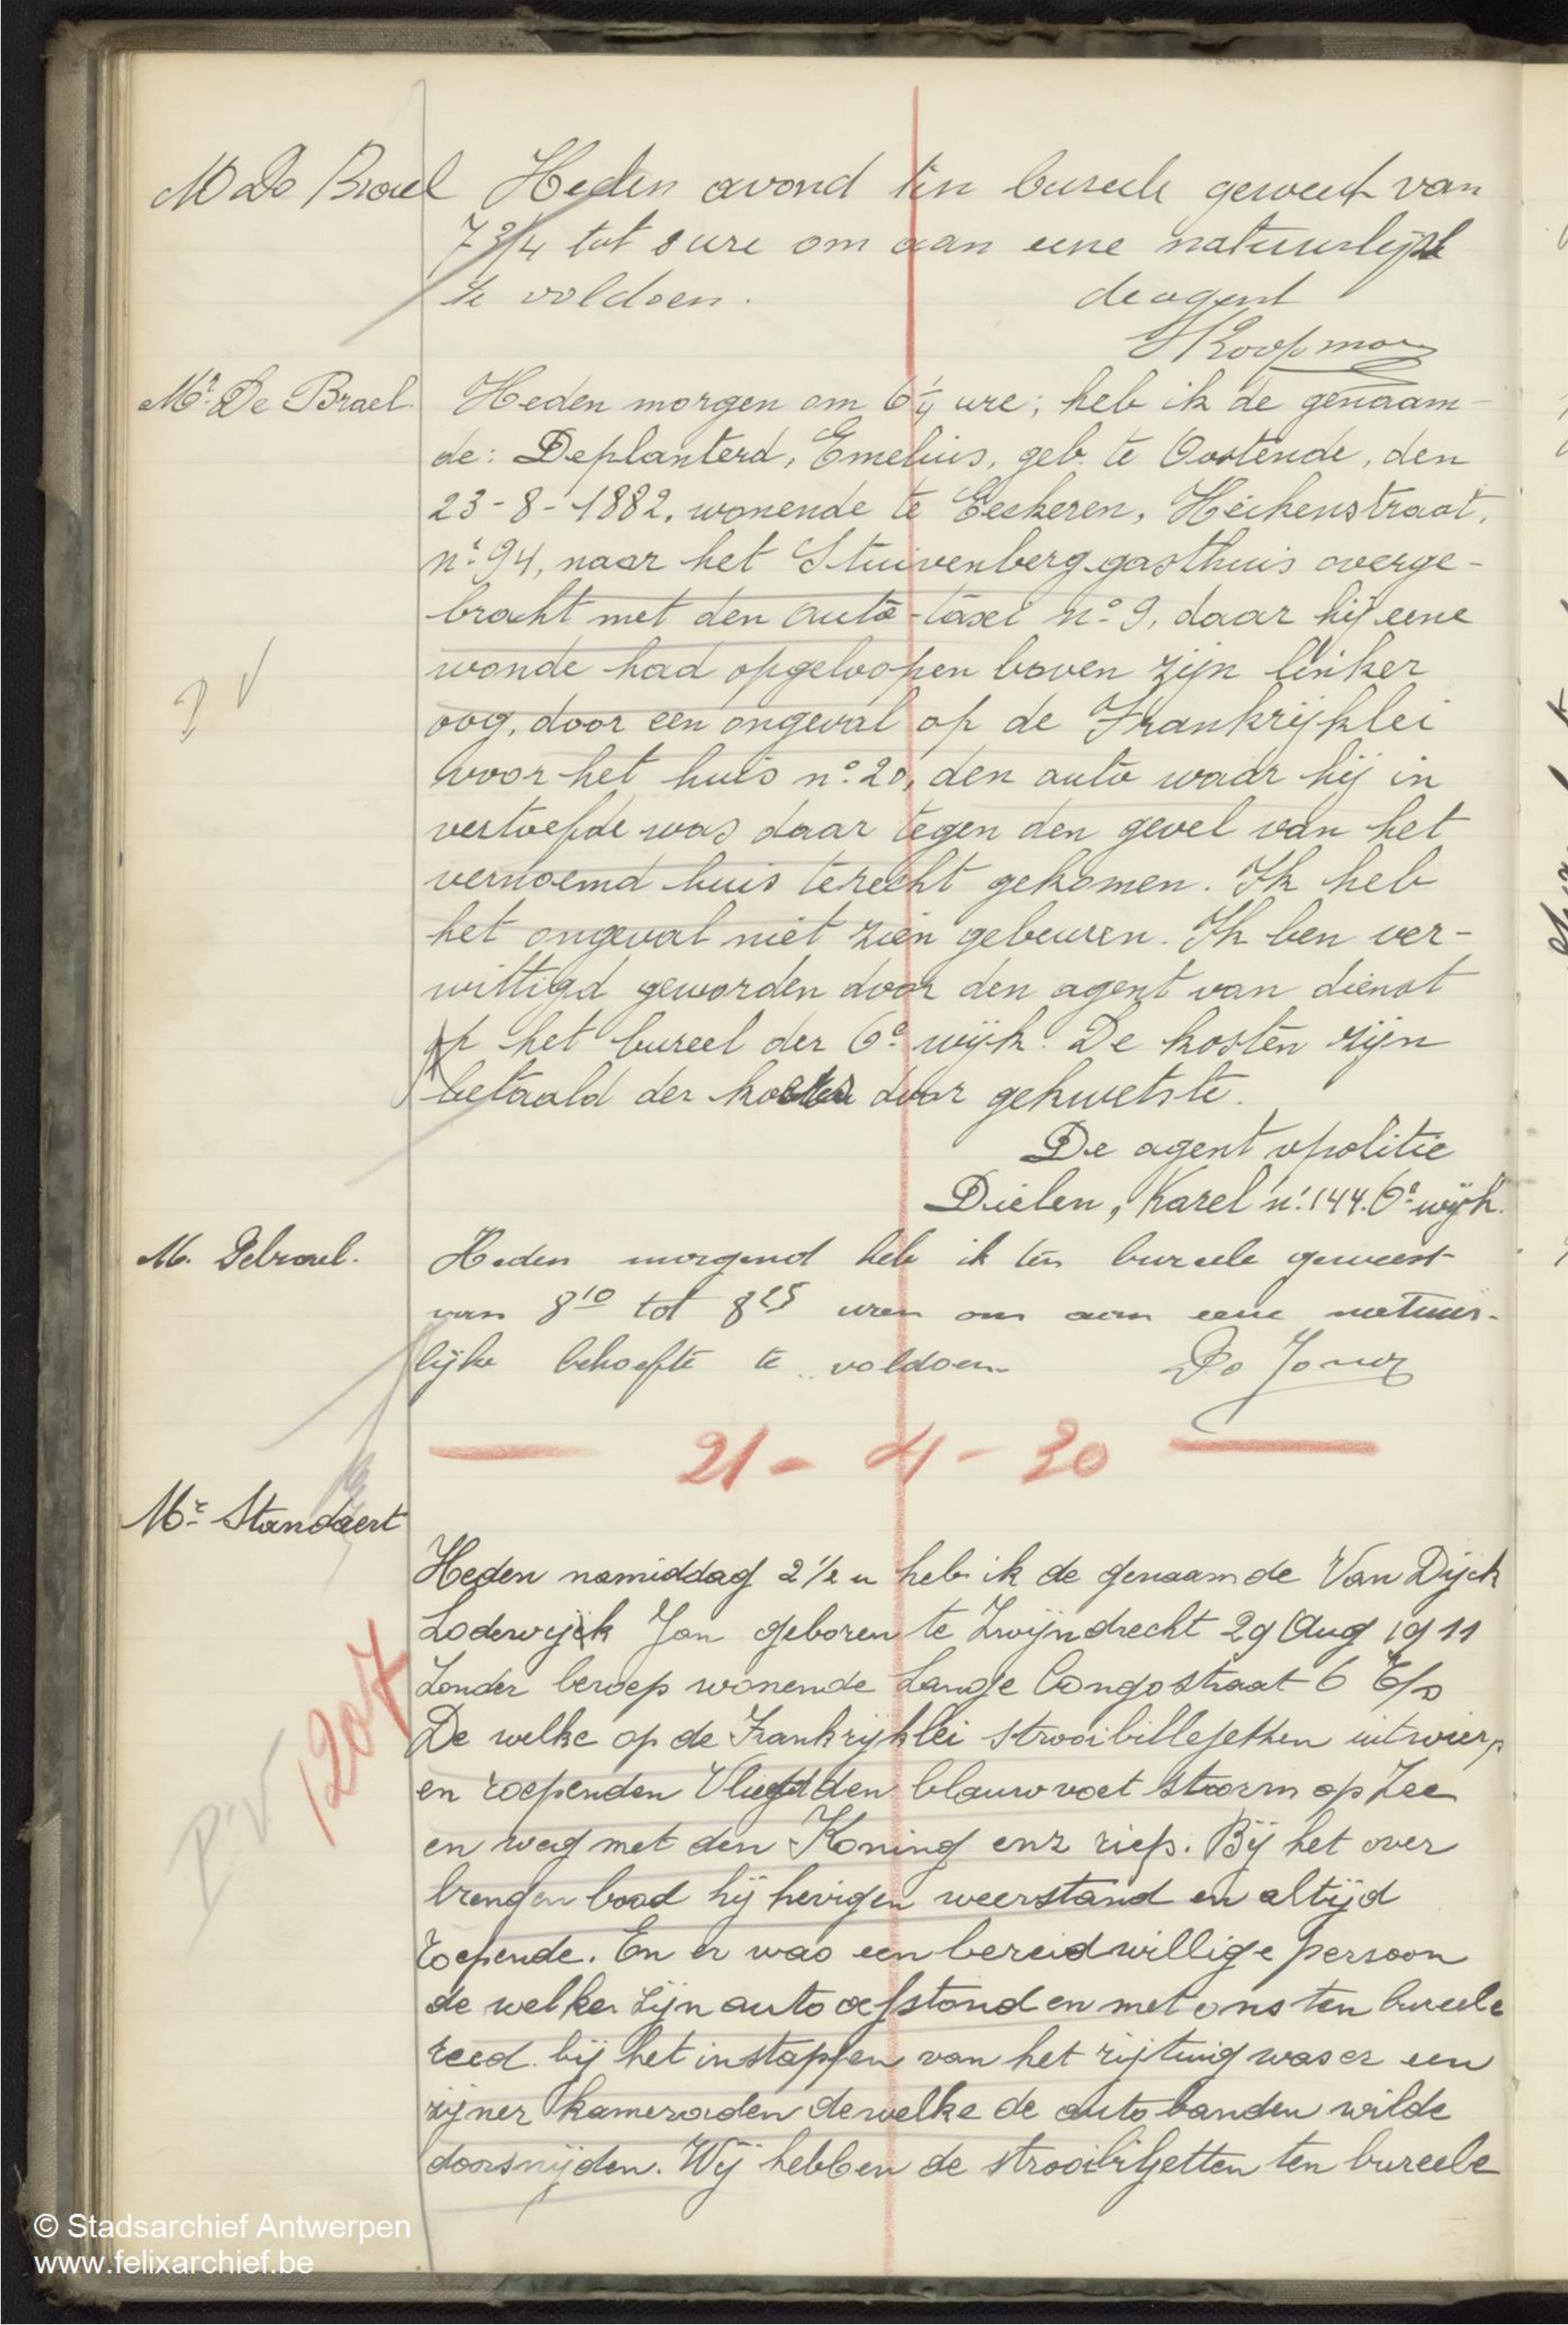 M De Brael Heden avond ten bureele geweest van
7 3/4 tot 8 ure om aan eene natuurlijk
te voldoen. de agent
Koopman
Mr. De Brael Heden morgen om 6 1/4 ure; heb ik de genaam-
de: Deplanterd, Emelius, geb. te Oostende, den
23-8-1882, wonende te Eeckeren, Heikenstraat,
n: 94, naar het Stuivenberggasthuis overge-
bracht met den auto-taxi n° 9, daar hij eene
wonde had opgeloopen boven zijn linker
P V
oog, door een ongeval op de Frankrijklei
voor het huis n° 20, den auto waar hij in
vertoefde was daar tegen den gevel van het
vernoemd huis terecht gekomen. Ik heb
het ongeval niet zien gebeuren. Ik ben ver-
wittigd geworden door den agent van dienst
op het bureel der 6e wijk. De kosten zijn
betaald der kosten door gekwetste.
De agent v politie
Dielen, Karel n: 144. 6e wijk.
M. Debrael. Heden morgend heb ik ten bureele geweest
van 8 10 tot 8 25 uren om aan eene natuur-
lijke behoefte te voldoen De Jong
21 - 4 - 30
Mr. Standaert
Heden namiddag 2 1/2 u heb ik de genaamde Van Dijck
Lodewijk Jan geboren te Zwijndrecht 29 Aug 1911
Zonder beroep wonende Lange Congostraat 6 E/s
1207
De welke op de Frankrijklei strooibilletjetten uitwierp
en roepende Vliegt den blauwvoet storm op Zee
PV
en weg met den Koning enz riep. Bij het over
brengen bood hij hevigen weerstand en altijd
roepende. En er was een bereidwillige persoon
de welke zijn auto afstond en met ons ten bureele
reed. bij het instappen van het rijtuig was er een
zijner kameraden dewelke de auto banden wilde
doorsnijden. Wij hebben de strooibiljetten ten bureele
© Stadsarchief Antwerpen
www.felixarchief.be